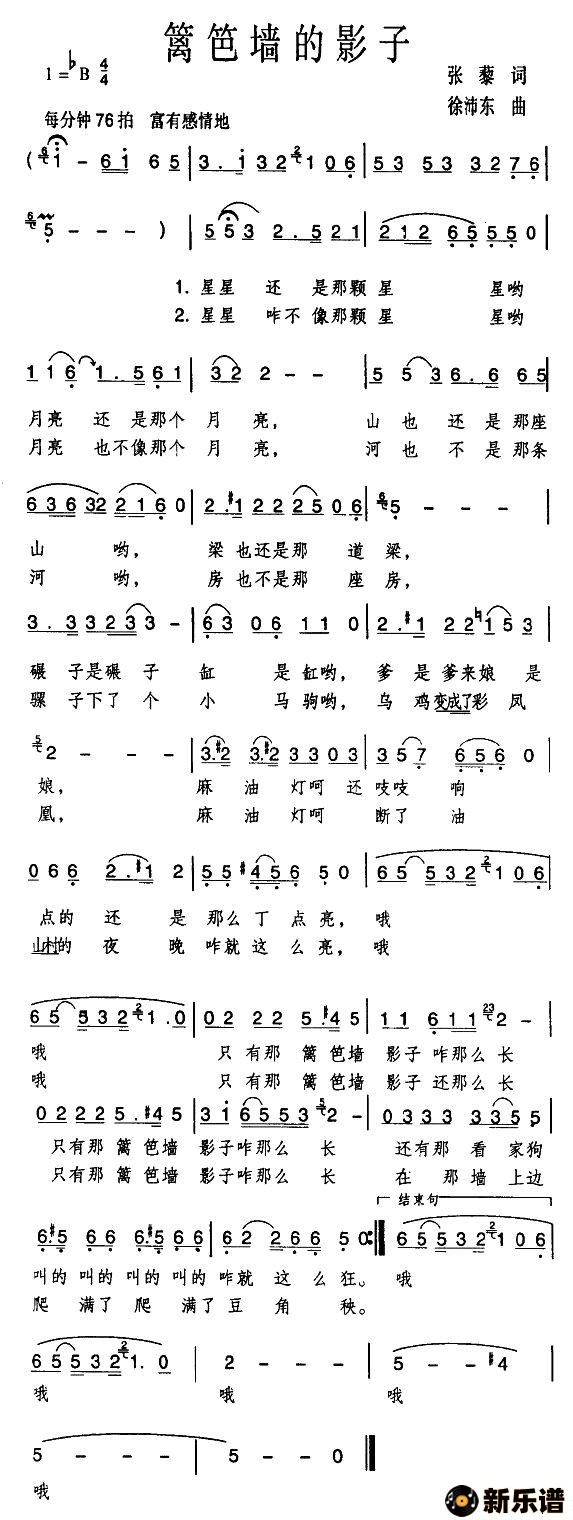 篱笆墙的影子
1=♭B 4/4
张藜 词
徐沛东 曲
每分钟76拍 富有感情地
( 6 i - 6 i 6 5 | 3. i 3 2 2 1 0 6 | 5 3 5 3 3 2 7 6 |
6 5 - - - ) | 5 5 3 2. 5 2 1 | 2 1 2 6 5 5 5 0 |
1. 星星 还 是那颗 星 星哟
2. 星星 咋不 像那颗 星 星哟
1 1 6 1. 5 6 1 | 3 2 2 - - | 5 5 3 6. 6 6 5
月亮 还 是那个 月 亮， 山 也 还 是 那座
月亮 也不像那个 月 亮， 河 也 不 是 那条
6 3 6 3 2 2 1 6 0 | 2. #1 2 2 2 5 0 6 | 6 5 - - -
山 哟， 梁 也还是那 道 梁，
河 哟， 房 也不是那 座 房，
3. 3 3 2 3 3 - | 6 3 0 6 1 1 0 | 2. #1 2 2 ♮1 5 3
碾 子是碾 子 缸 是 缸哟， 爹 是 爹来娘 是
骡 子下了 个 小 马 驹哟， 乌 鸡变成了彩 凤
5 2 - - - | 3. #2 3. #2 3 3 0 3 | 3 5 7 6 5 6 0
娘， 麻 油 灯呵 还 吱吱 响
凰， 麻 油 灯呵 断了 油
0 6 6 6 2. #1 2 | 5 5 #4 5 6 5 0 | 6 5 5 3 2 2 1 0 6
点的 还 是 那么 丁 点 亮， 哦
山村的 夜 晚 咋就 这 么 亮， 哦
6 5 5 3 2 2 1. 0 | 0 2 2 2 5. #4 5 | 1 1 6 1 1 23 2 -
哦 只 有那 篱 笆墙 影子 咋那么 长
哦 只 有那 篱 笆墙 影子 还那么 长
0 2 2 2 5. #4 5 | 3 i 6 5 5 3 5 2 - | 0 3 3 3 3 3 5 5
只有那 篱 笆墙 影子咋那么 长 还有那 看 家狗
只有那 篱 笆墙 影子咋那么 长 在 那 墙 上边
结束句
6. #5 6 6 6 6 6. #5 | 6 2 2 6 6 5 0 :| 6 5 5 3 2 2 1 0 6
叫的 叫的 叫的 叫的 咋就 这 么 狂。 哦
爬 满了 爬 满了 豆 角 秧。
6 5 5 3 2 2 1. 0 | 2 - - - | 5 - - #4
哦 哦 哦
5 - - - | 5 - - 0
哦
新乐谱